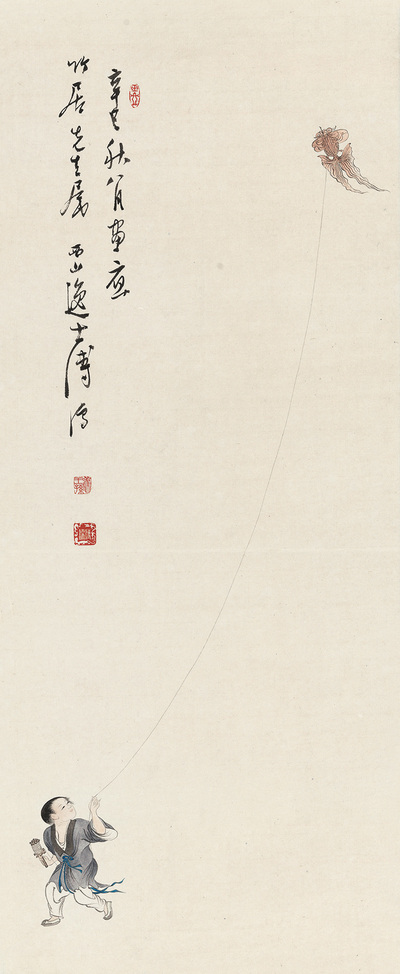 辛巳秋八月畫應
竹居先生属 西山逸士溥儒